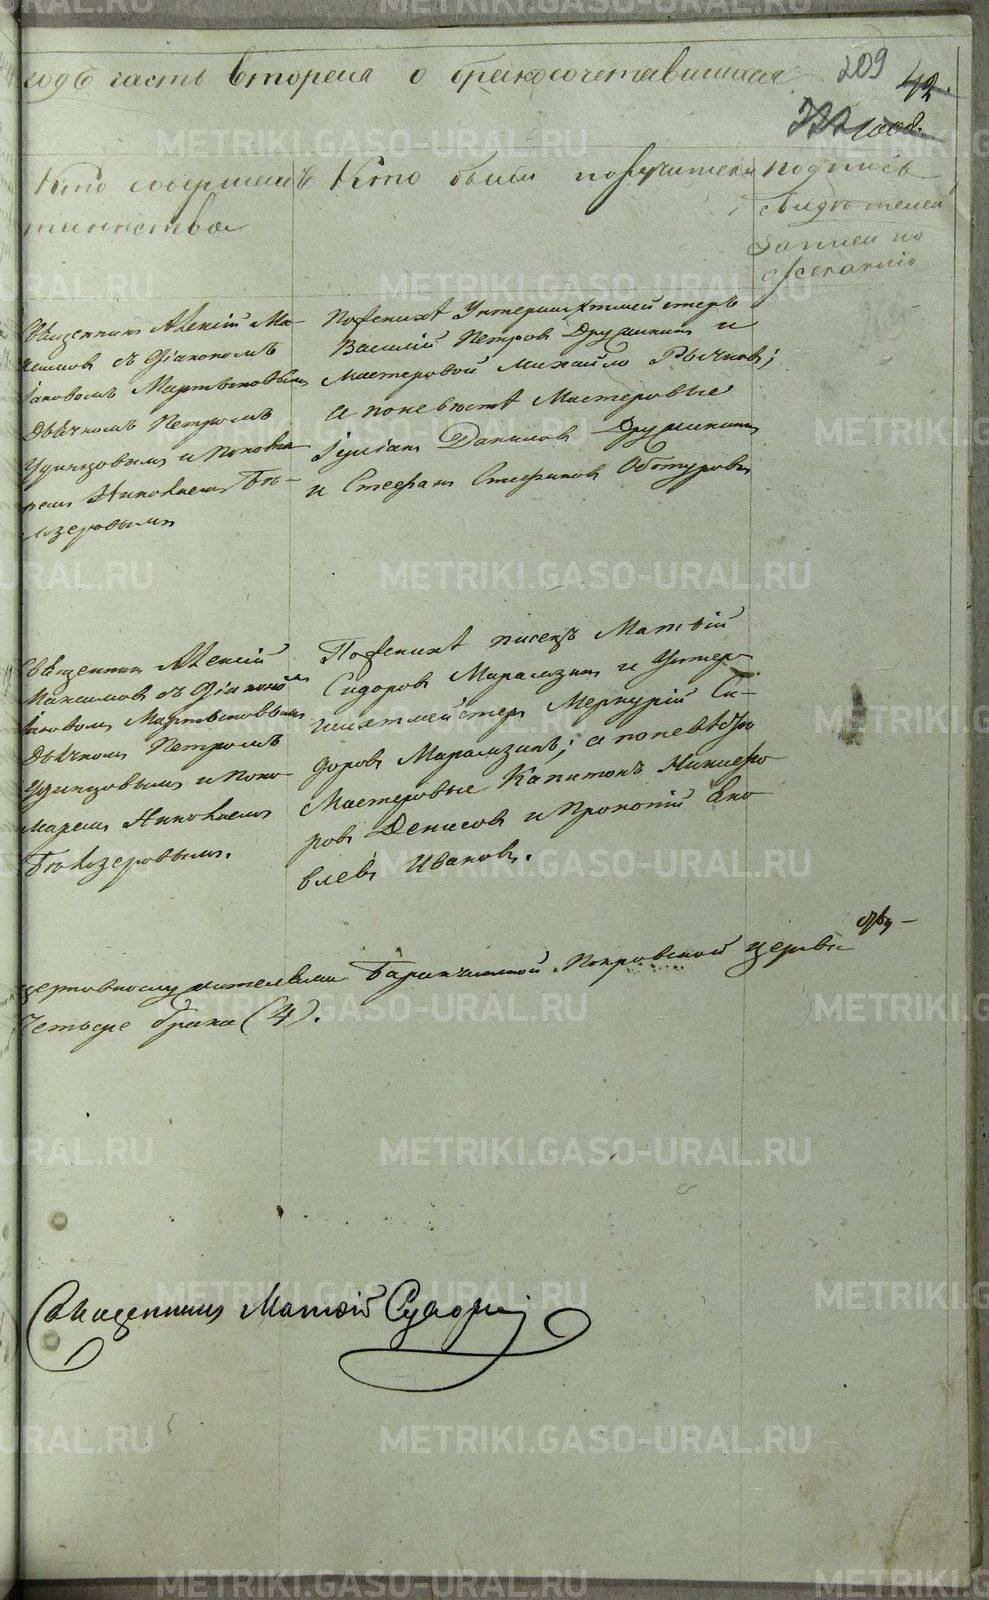 годъ часть вторая о бракосочетавшихся
209
42.
Кто совершалъ
таинства
Кто были поручители
подпись
свидѣтелей
записи по
желанію
Священникъ Алексій Ма-
ксимовъ съ Діакономъ
Іаковомъ Мартыновымъ
Дьячкомъ Петромъ
Удинцовымъ и Понома-
ремъ Николаемъ Бѣ-
лозеровымъ
По женихѣ Унтершихтмейстеръ
Василій Петровъ Дружининъ и
Мастеровой Михайло Рычковъ;
а по невѣстѣ Мастеровые
Іуліанъ Даниловъ Дружининъ
и Стефанъ Стефановъ Оботуровъ
Священникъ Алексій
Максимовъ съ Діакономъ
Іаковомъ Мартыновымъ
Дьячкомъ Петромъ
Удинцовымъ и Поно-
маремъ Николаемъ
Бѣлозеровымъ.
По женихѣ писецъ Матвій
Сидоровъ Марамзинъ и Унтер-
шихтмейстеръ Меркурій Си-
доровъ Марамзинъ; а по невѣстѣ
Мастеровые Капитонъ Никифо-
ровъ Денисовъ и Прокопій Яко-
влевъ Ивановъ.
церковнослужителями Баранчинской Покровской церкви
четыре брака (4).
Священникъ Матвій
METRIKI.GASO-URAL.RU